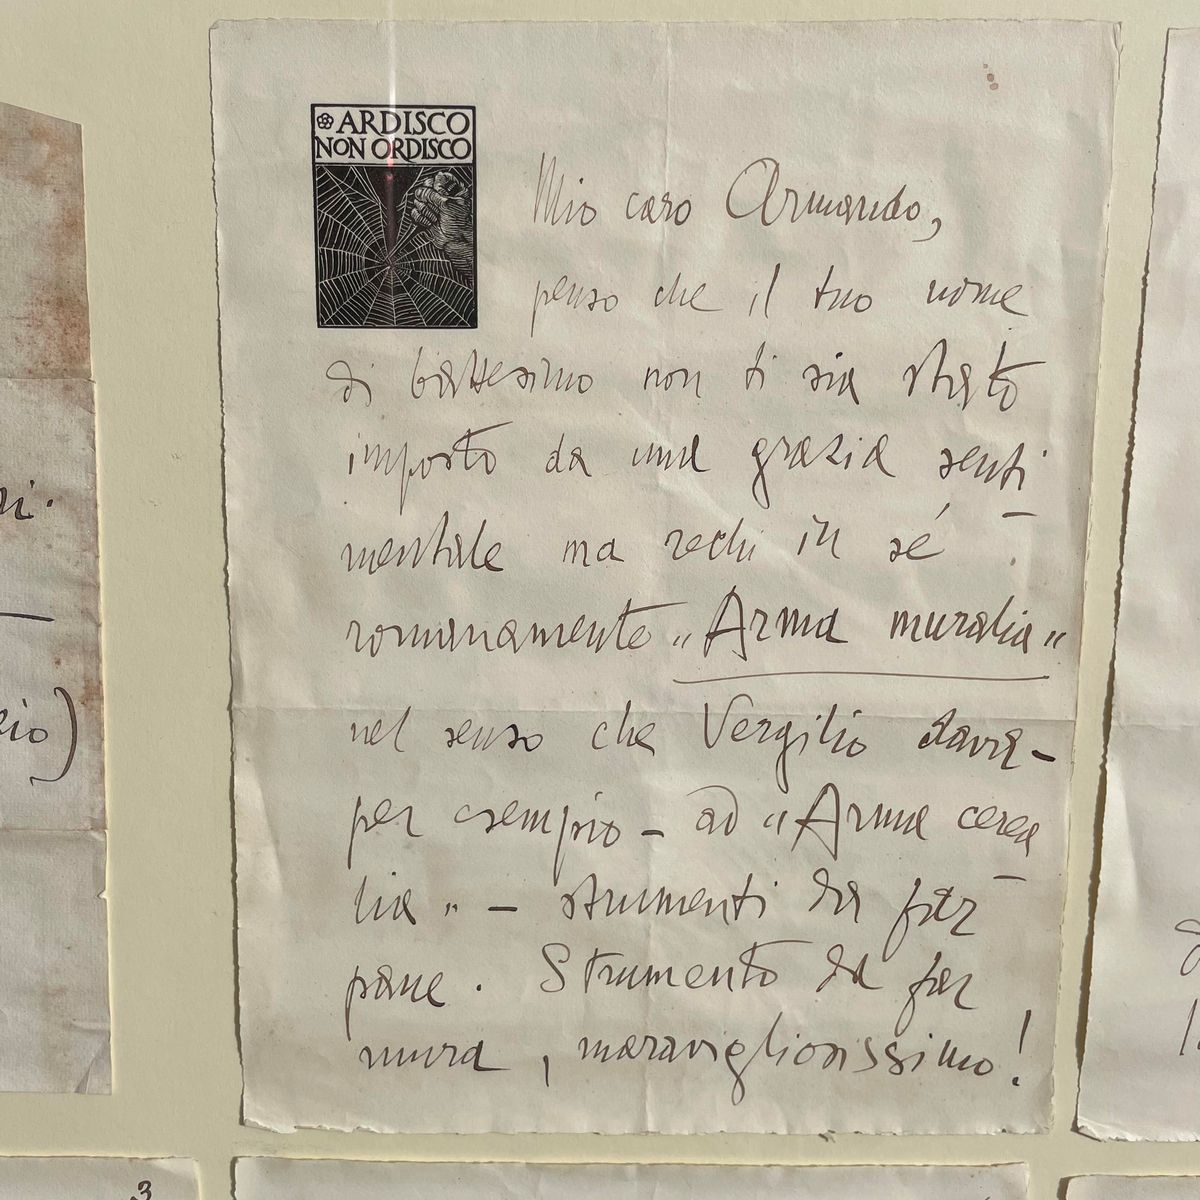 ARDISCO
NON ORDISCO
Mio caro Armando,
penso che il tuo nome
di battesimo non ti sia stato
imposto da una grazia senti-
mentale ma rechi in sé
romanamente „Arma muralia“
nel senso che Vergilio dava -
per esempio - ad „Arma cerea-
lia" - strumenti da far
pane. Strumento da far
mura, maravigliosissimo!
3